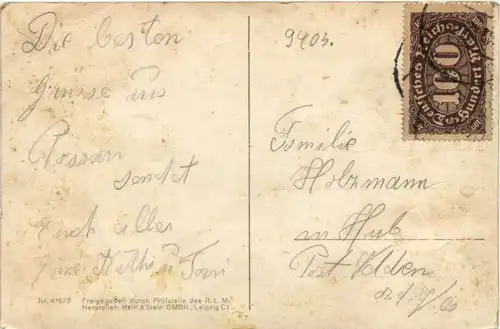 Die besten
Grüsse aus
Rossau
sendet
Euch allen
9403.
Familie
Holzmann
in Hub
Post Velden
a. d. Vils
Deutsches Reich
100
Hundert Mark
Nr. 41678 Freigegeben durch Prüfstelle des R. L. M.
Hersteller: Hein & Stein GMBH., Leipzig C1